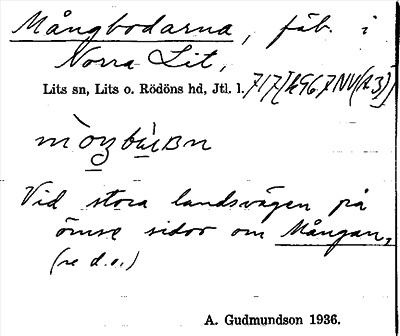 Mångbodarna, fäb. i
Norra Lit,
Lits sn, Lits o. Rödöns hd, Jtl. l.
Vid stora landsvägen på
ömse sidor om Mången,
(se d.o.)
A. Gudmundson 1936.